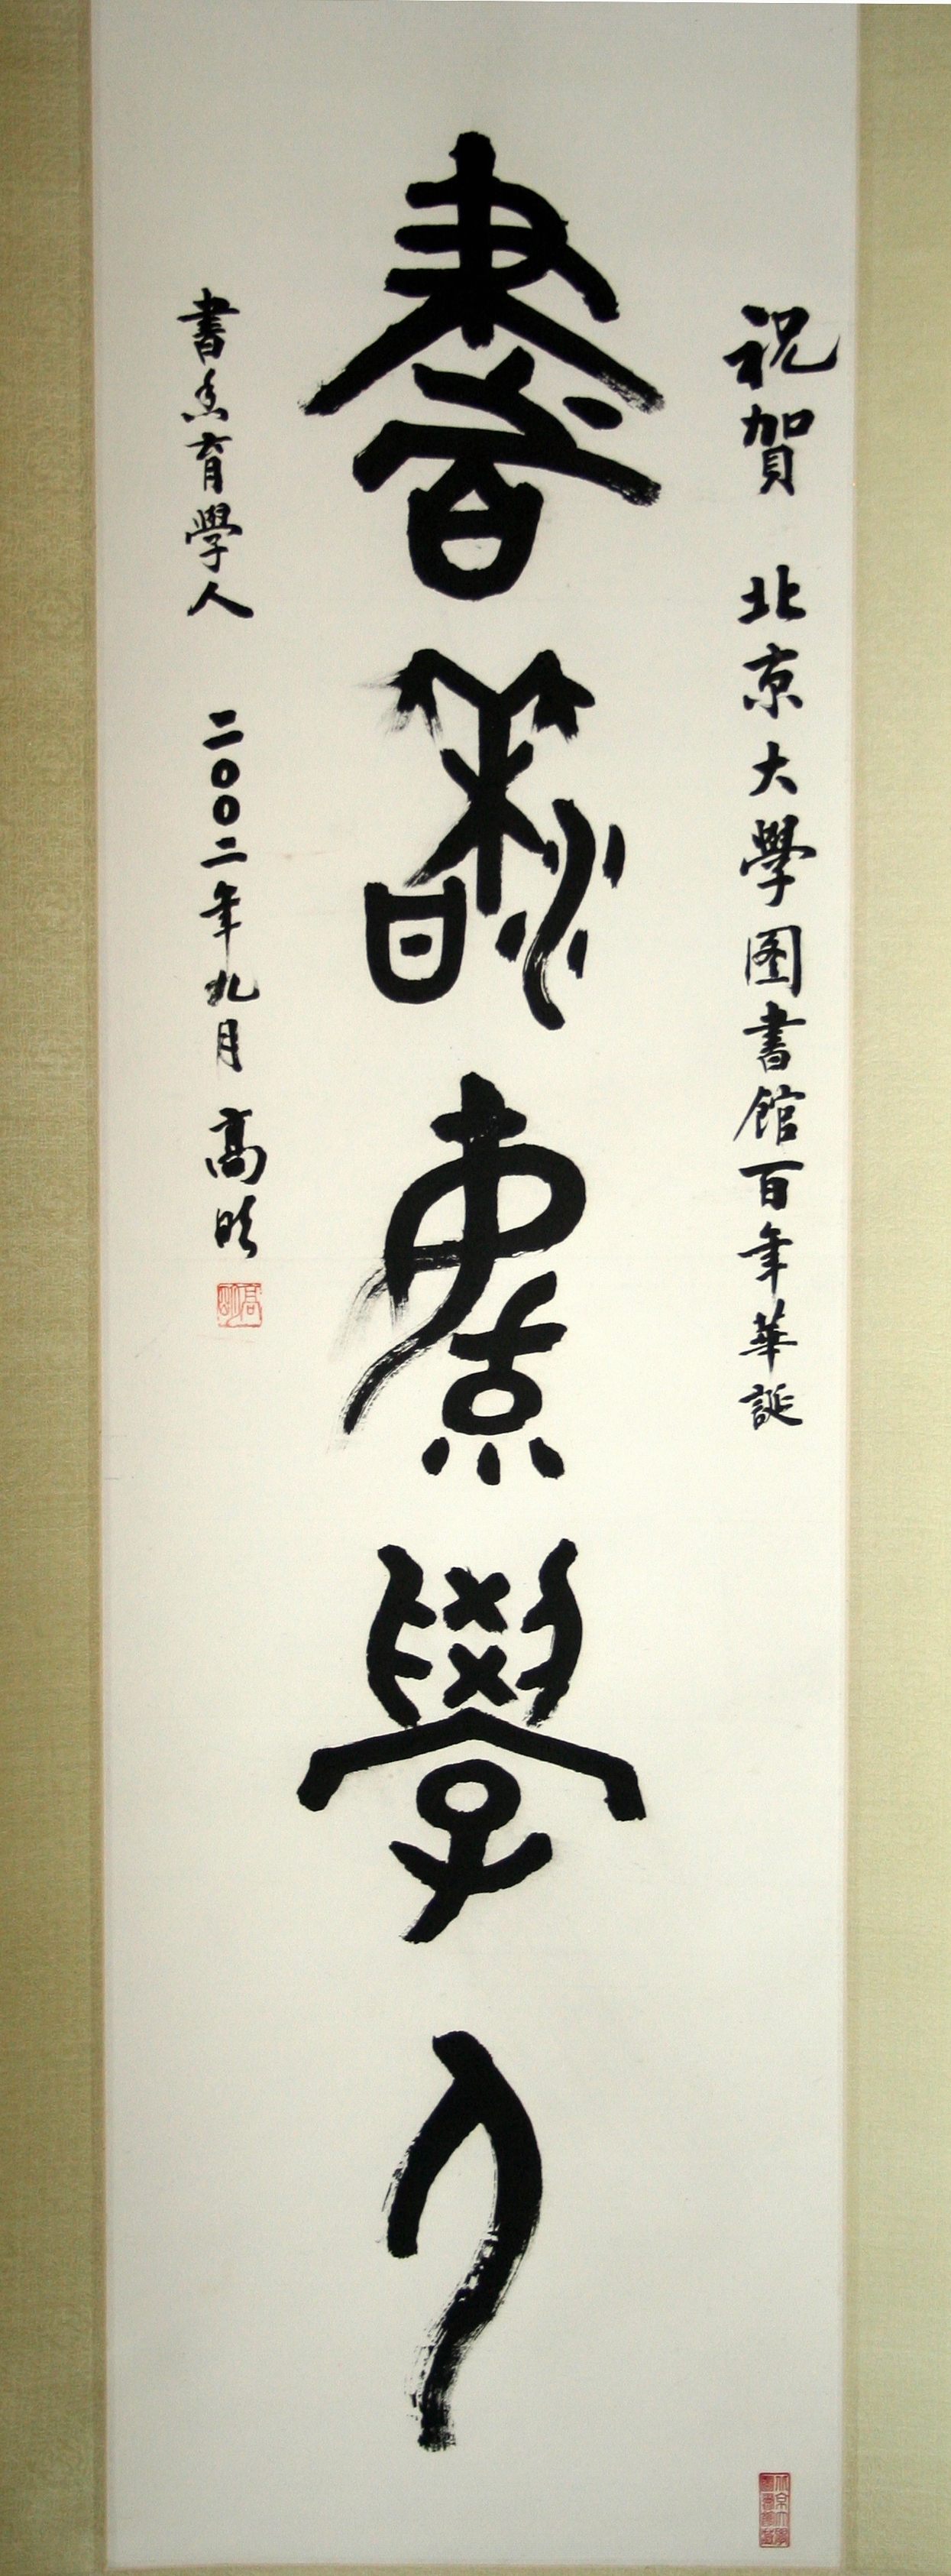 祝賀 北京大學图書館百年華誕
書香育學人
書香育學人 二〇〇二年九月 高明
高明